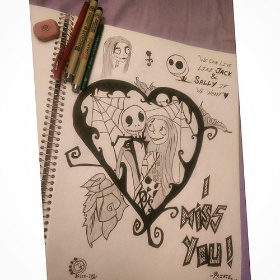 "WE CAN LIVE
LIKE JACK
&
SALLY IF
WE WANT"
I
MISS
YOU!